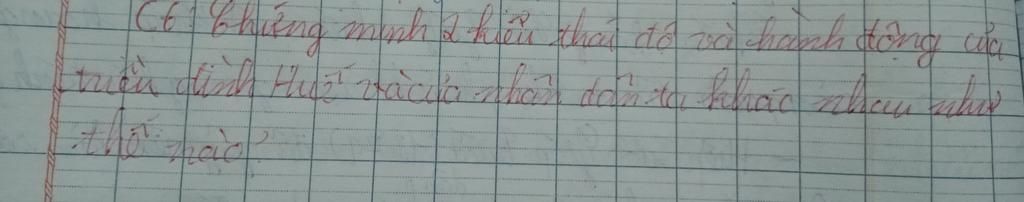 C6 Chứng minh 2 kiểu thái độ và hành động của
triều đình Huế và của nhân dân ta khác nhau như
thế nào?